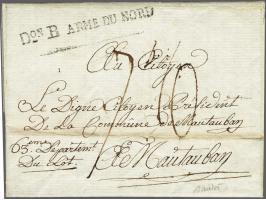 Don B ARME DU NORD
Au Citoyen
Le Digne Citoyen President
De la Commune de Mautauban
63eme Departemt
Du Lot
A Mautauban